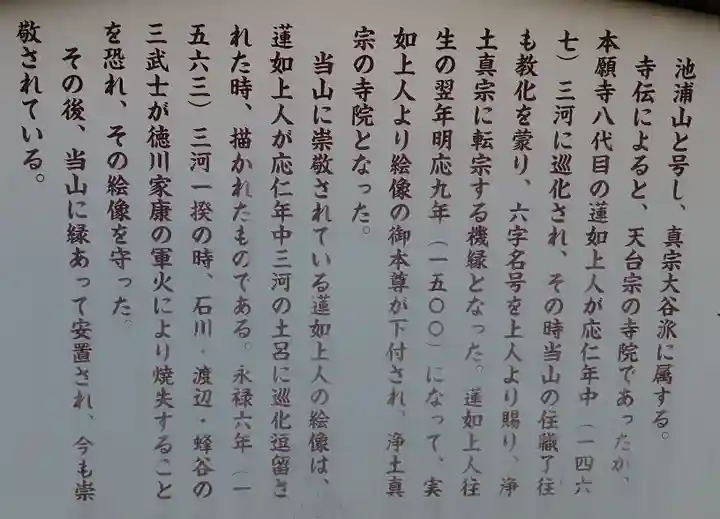 池浦山と号し、真宗大谷派に属する。
寺伝によると、天台宗の寺院であったが、
本願寺八代目の蓮如上人が応仁年中（一四六
七）三河に巡化され、その時当山の住職了往
も教化を蒙り、六字名号を上人より賜り、浄
土真宗に転宗する機縁となった。蓮如上人往
生の翌年明応九年（一五〇〇）になって、実
如上人より絵像の御本尊が下付され、浄土真
宗の寺院となった。
当山に崇敬されている蓮如上人の絵像は、
蓮如上人が応仁年中三河の土呂に巡化逗留さ
れた時、描かれたものである。永禄六年（一
五六三）三河一揆の時、石川・渡辺・蜂谷の
三武士が徳川家康の軍火により焼失すること
を恐れ、その絵像を守った。
その後、当山に縁あって安置され、今も崇
敬されている。